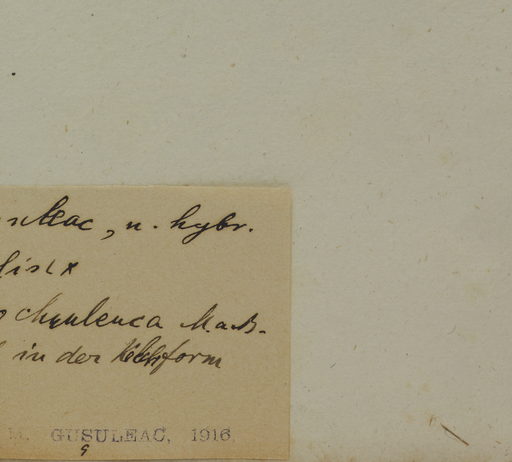 suleac, n. hybr.
lis x
ochroleuca M.a.B.
in der Kelchform
M. GUSULEAC, 1916.
9